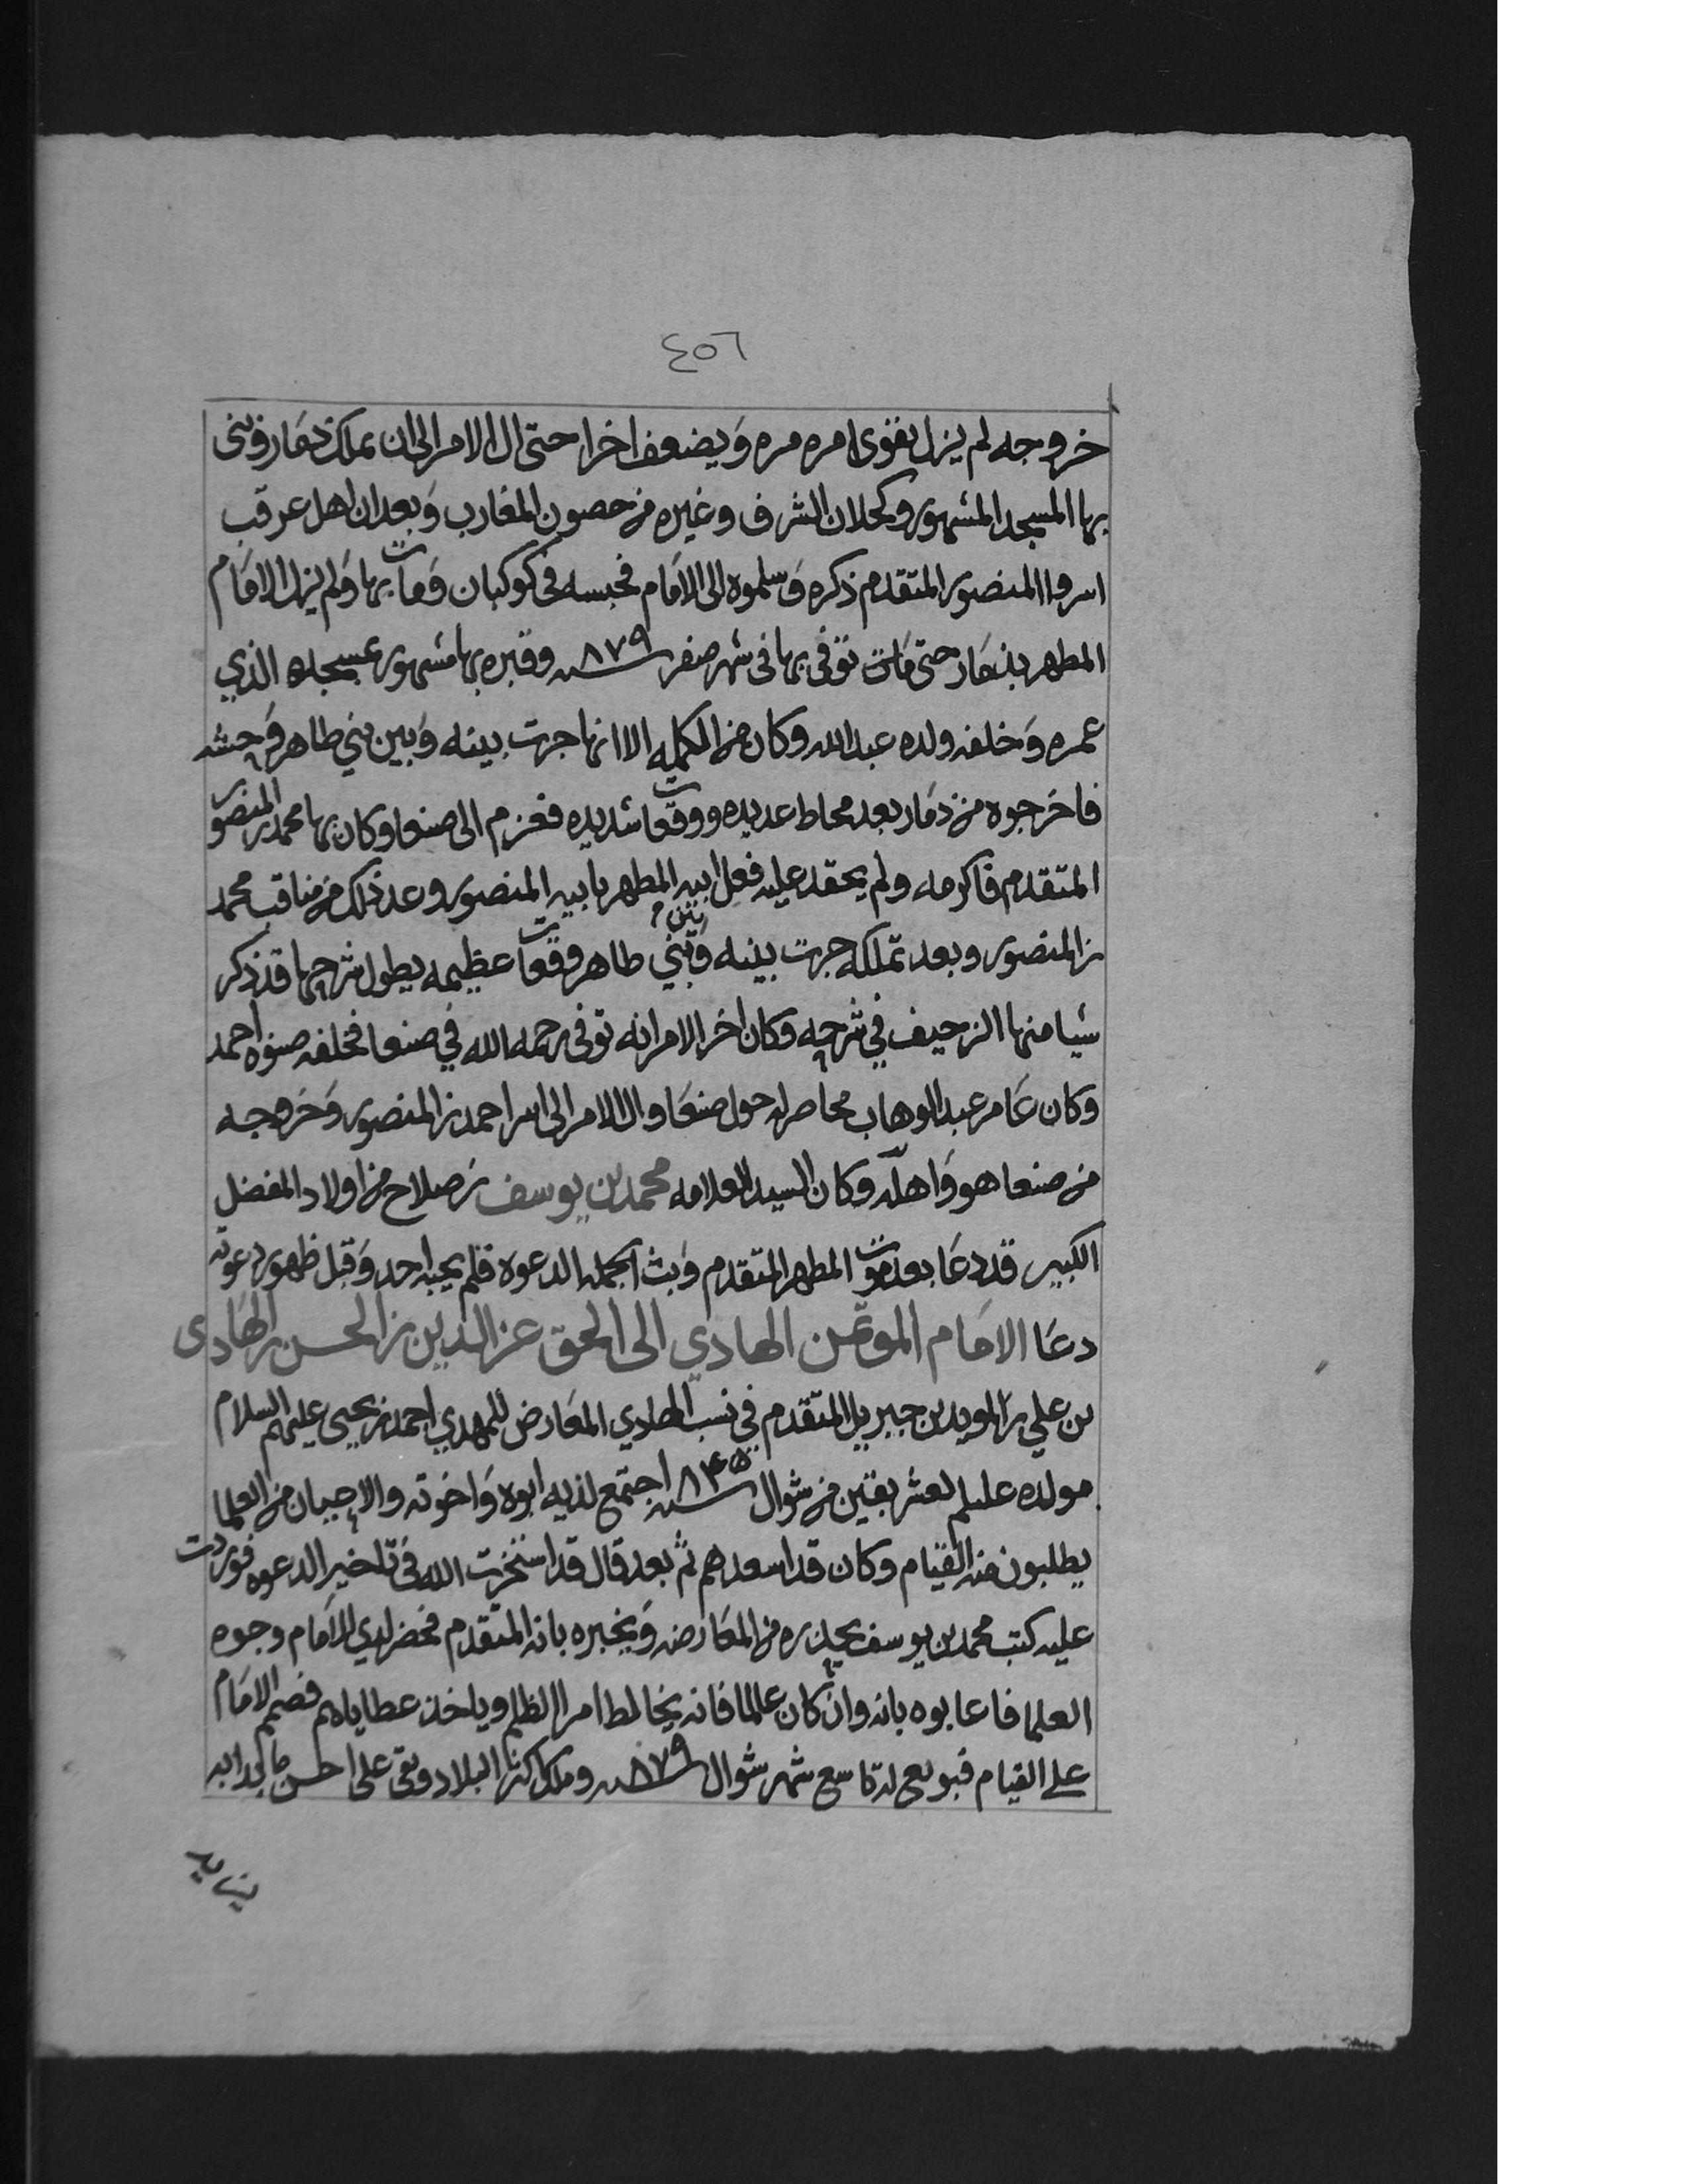 ٤٥٦
خروجه لم يزل يقوى امره مره وَيضعف اخرا حتى ال الامر الى ان تملك ذمار وبنى
بها المسجد المشهور وكحلان الشرف وغيره من حصون المغارب وَبعد ان اهل عرقب
اسروا المنصور المتقدم ذكره وَسلموه الى الامَام فحبسه في كوكبان وَمات بها وَلم يزل الامَام
المطهر بذمَار حتى مَات توفى بها في شهر صفر سنه ٨٧٩ وقبره بها مشهور بمسجده الذي
عمره وَخلفه ولده عبدالله وكان من الكمله الا انها جرت بينه وَبين بني طاهر وَحشه
فاخرجوه من ذمَار بعد محاط عديده ووقعات شديده فعزم الى صنعا وكان بها محمد بن المنصور
المتقدم فاكرمه ولم يحقد عليه فعل ابيه المطهر بابيه المنصور وعد ذلك من مناقب محمد
بن المنصور وبعد تملكه جرت بينه وَبين بني طاهر وقعات عظيمه يطول شرحها قد ذكر
شيا منها الزحيف في شرحه وكان اخر الامر انه توفى رحمه الله في صنعا فخلفه صنوه احمد
وكان عَامر عبدالوهاب محاصر له حول صنعَا وال الامر الى اسر احمد بن المنصور وَخروجه
من صنعا هو وَاهله وكان السيد العلامه محمد بن يوسف بن صلاح من اولاد المفضل
الكبير قد دعَا بعد موت المطهر المتقدم وَبث لجمله الدعوه فلم يجبه احد وَقبل ظهور دعوته
دعَا الامَام المؤتمن الهادي الى الحق عز الدين بن الحسن بن الهَادى
بن علي بن المويد بن جبريل المتقدم في نسب الهادي المعَارض للمهدي احمد بن يحيى عليهم السلام
مولده عليلم لعشر بقين من شوال سنه ٨٤٥ اجتمع لديه ابوه وَاخوته والاعيان من العلما
يطلبون منه القيام وكان قد اسعدهم ثم بعد قال قد استخرت الله في تاخير الدعوه فوردت
عليه كتب محمد بن يوسف يحذره من المعَارضه وَيخبره بانه المتقدم فحضر لدي الامَام وجوه
العلما فاعابوه بانه وان كان عالما فانه يخالط امرا الظلم وياخذ عطاياهم فصمم الامَام
على القيام فبويع له تاسع شهر شوال سنه ٨٧٩ وملك اكثر البلاد وبقى على احسن مَا
يزيد